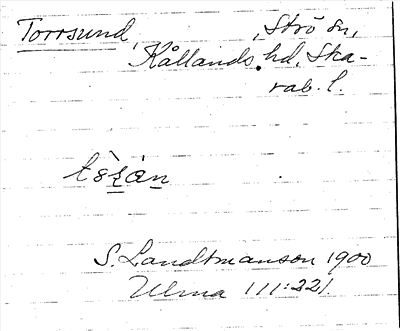 Torrsund, Strö sn,
Kållands hd. Ska-
rab. l.
S. Landtmanson 1900
Ulma 111:221